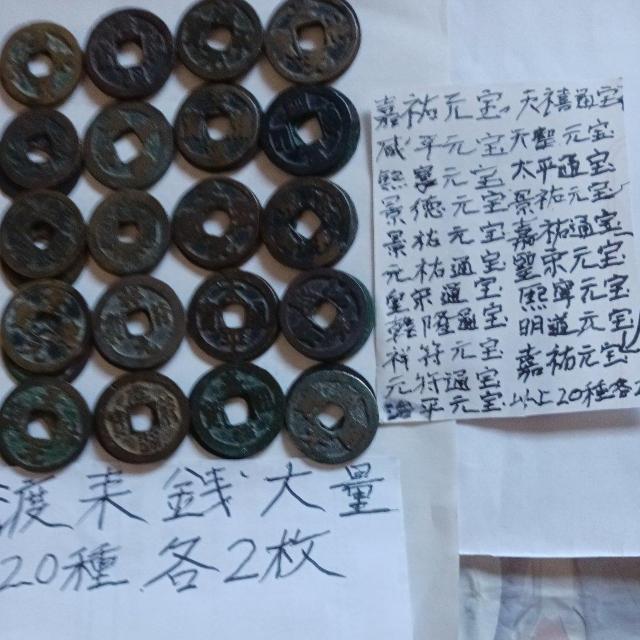 嘉祐元宝 天禧通宝
咸平元宝 天聖元宝
元宝 太平通宝
景徳元宝 景祐元宝
景祐元宝 嘉祐通宝
元祐通宝 聖宋元宝
聖宋通宝 元宝
通宝 明道元宝
祥符元宝 嘉祐元宝
元符通宝 以上20種各
平元宝
渡来銭大量
20種各2枚